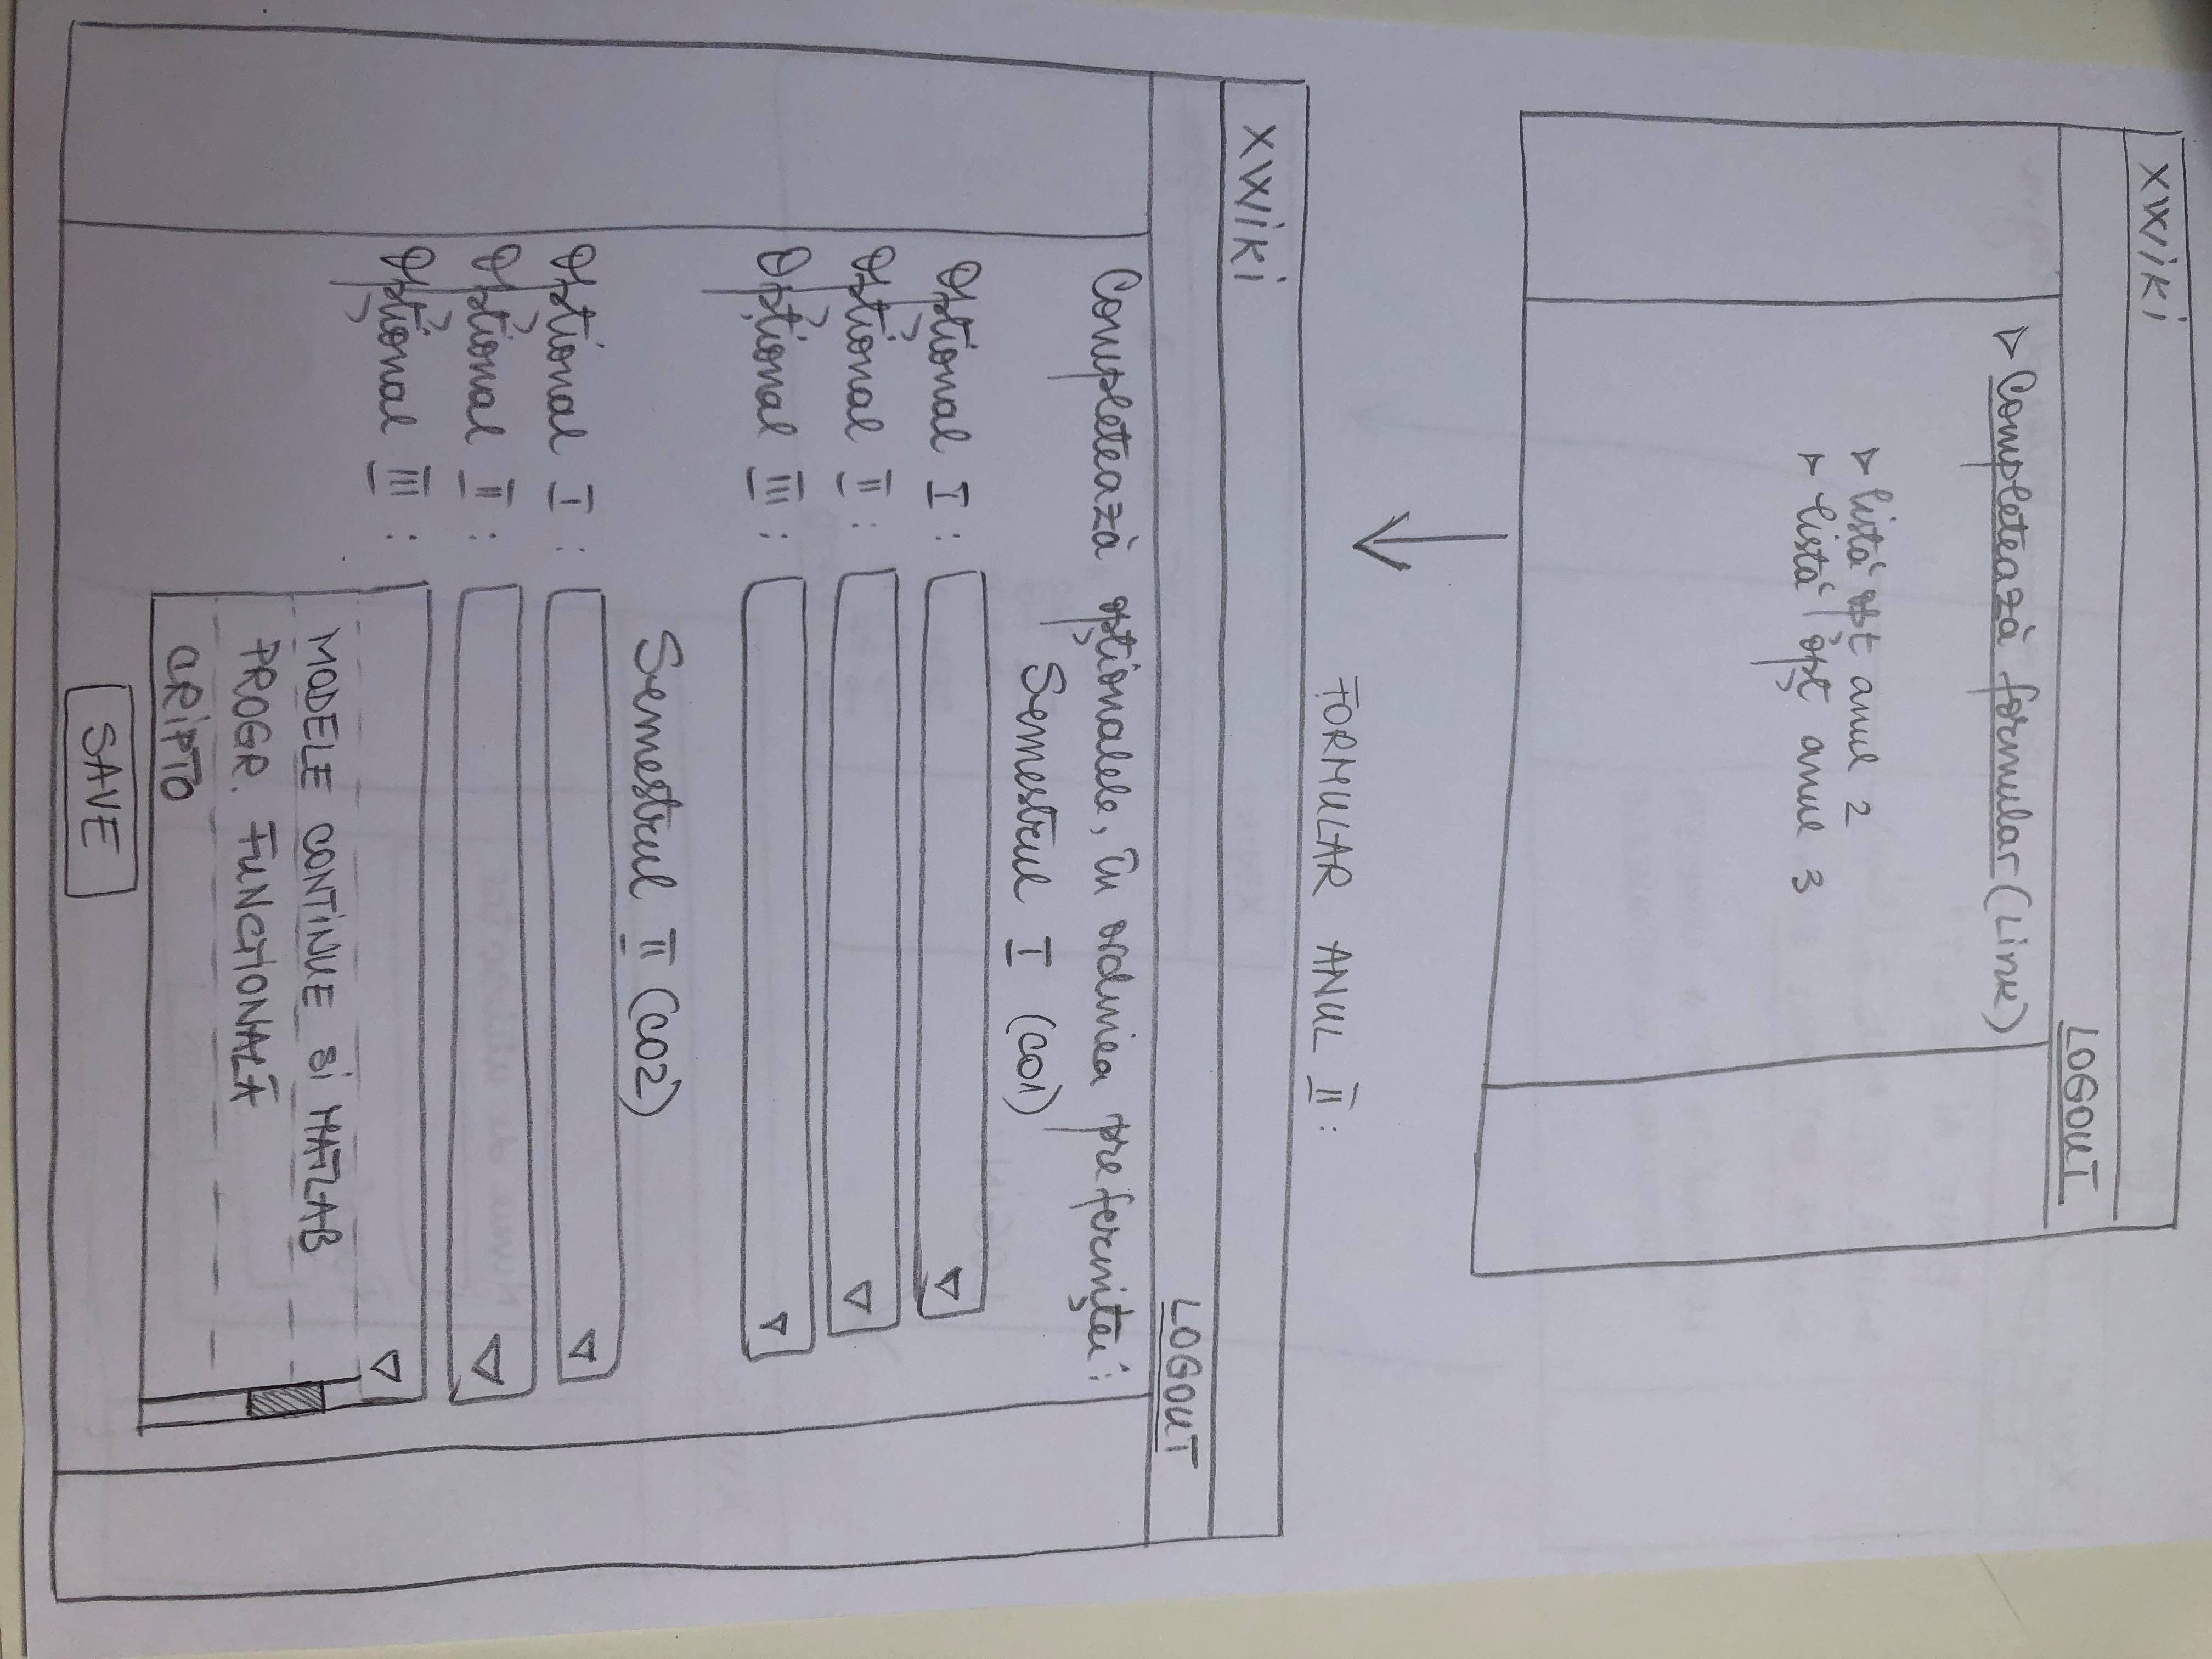 XWiKi
LOGOUT
Completează formular (Link)
listă opt anul 2
listă opț anul 3
FORMULAR ANUL II:
XWiKi
LOGOUT
Completează opționalele, în ordinea preferinței:
Semestrul I (CO1)
Opțional I :
Opțional II :
Opțional III :
Semestrul II (CO2)
Opțional I :
Opțional II :
Opțional III :
MODELE CONTINUE SI MATLAB
PROGR. FUNCTIONALĂ
CRIPTO
SAVE